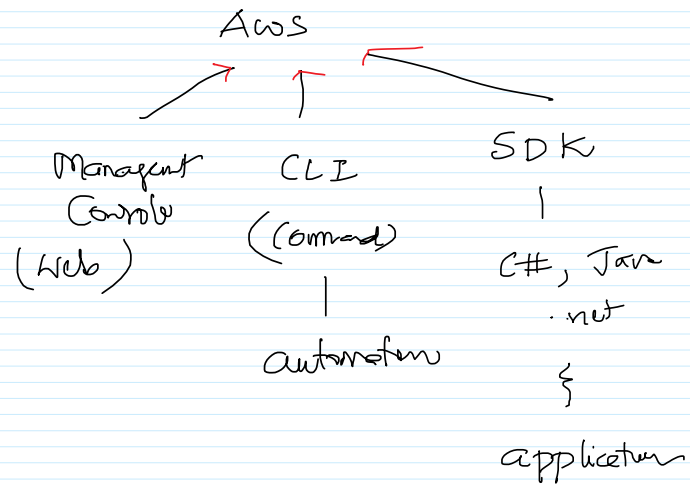 AWS
Managent
Console
(Web)
CLI
(Command)
automation
SDK
C#, Java
.net
application